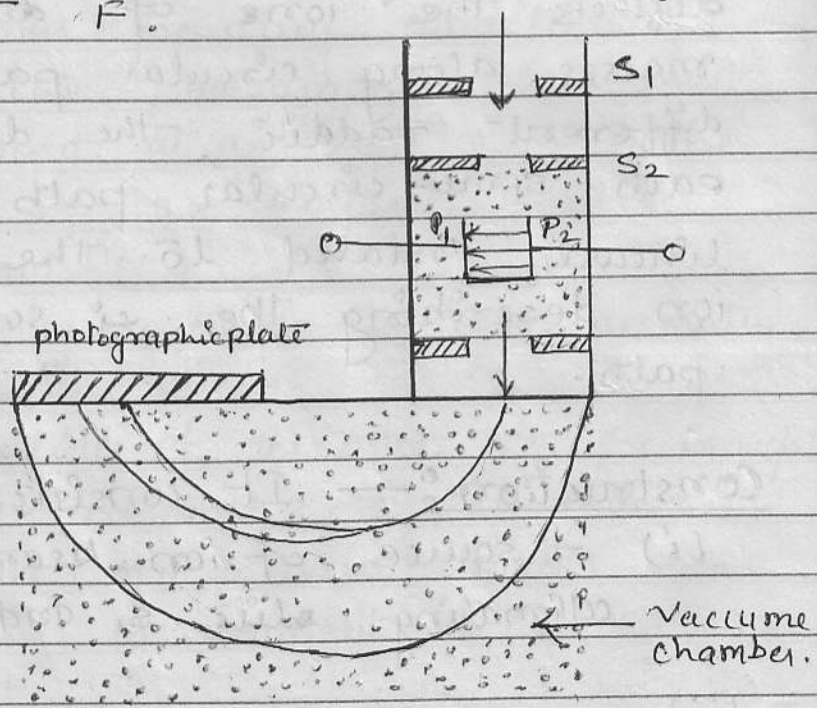 F.
S1
S2
P1 P2
photographic plate
Vaccume
chamber.